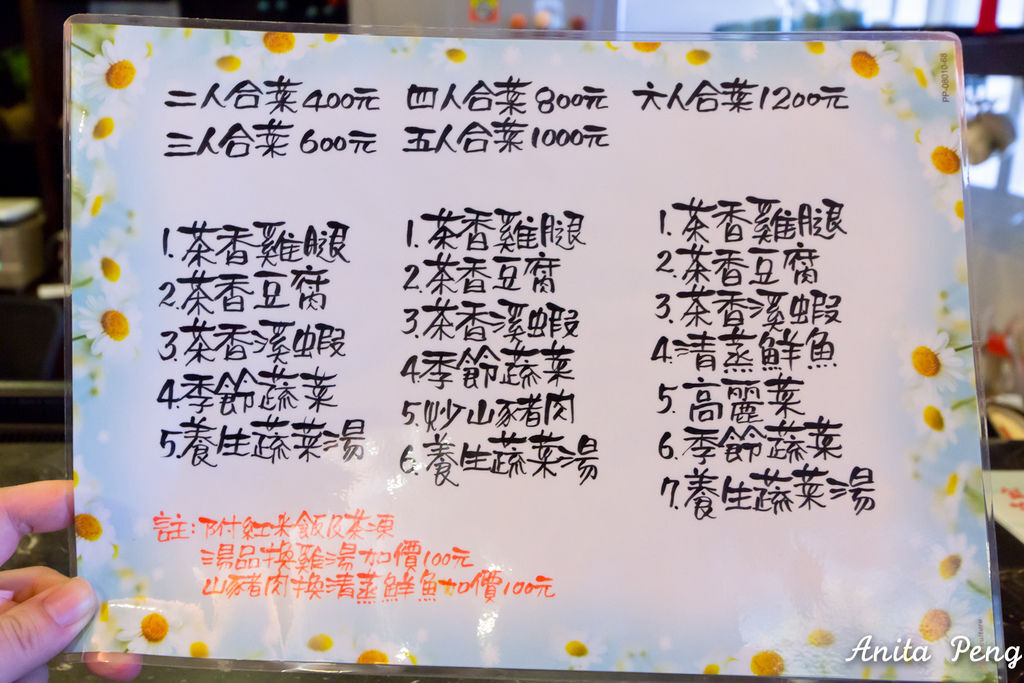 二人合菜400元
三人合菜600元
1.茶香雞腿
2.茶香豆腐
3.茶香溪蝦
4.季節蔬菜
5.養生蔬菜湯
四人合菜800元
五人合菜1000元
1.茶香雞腿
2.茶香豆腐
3.茶香溪蝦
4.季節蔬菜
5.炒山豬肉
6.養生蔬菜湯
六人合菜1200元
1.茶香雞腿
2.茶香豆腐
3.茶香溪蝦
4.清蒸鮮魚
5.高麗菜
6.季節蔬菜
7.養生蔬菜湯
註:附紅米飯及茶凍
湯品換雞湯加價100元
山豬肉換清蒸鮮魚加價100元
PP-08010-68
Anita Peng